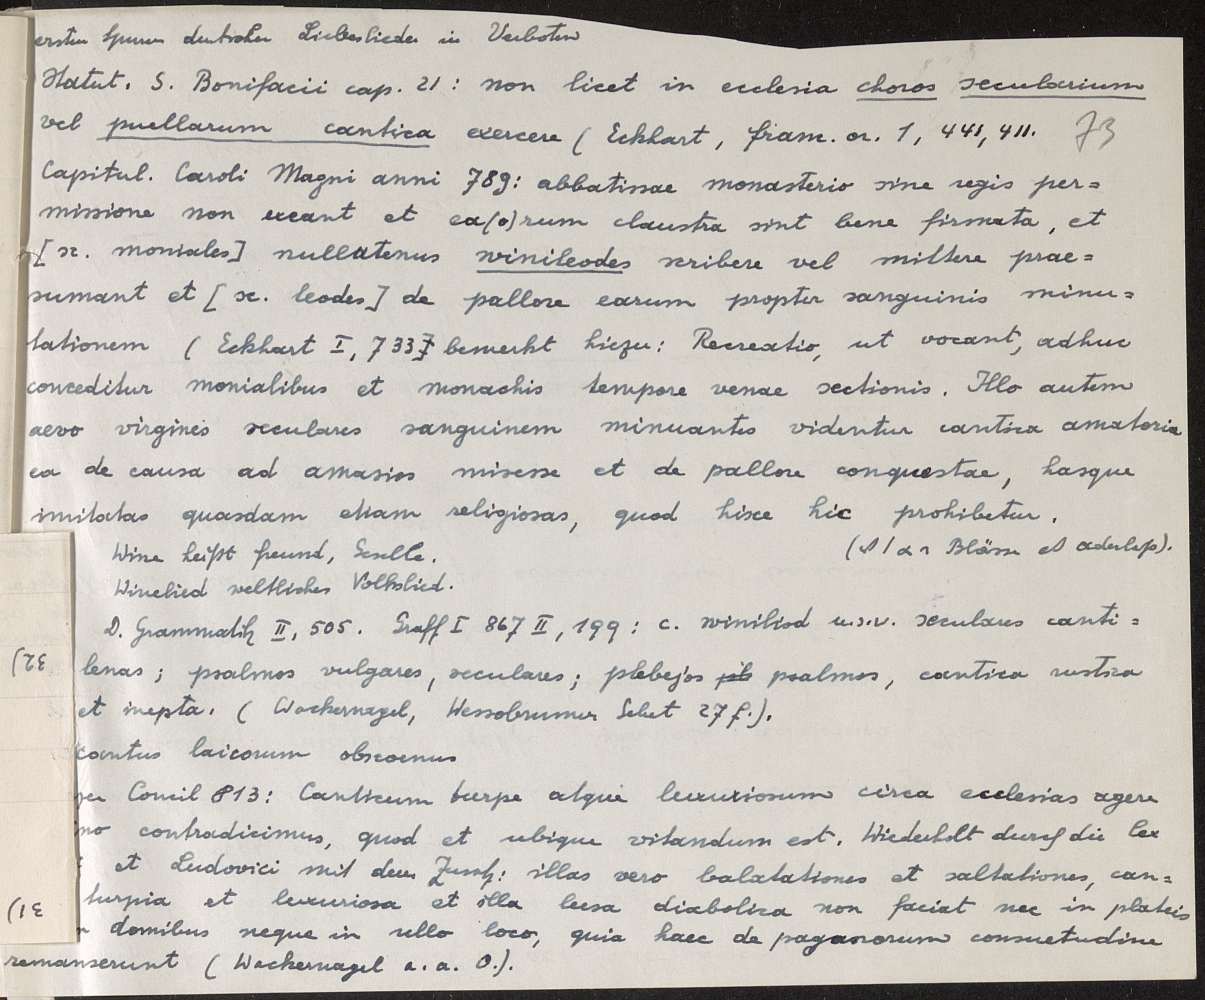 ersten Spuren deutscher Liebeslieder in Verboten
Statut. S. Bonifacii cap. 21: non licet in ecclesia choros secularium
vel puellarum cantica exercere (Eckhart, fram. or. 1, 441, 411. 73
Capitul. Caroli Magni anni 789: abbatissae monasterio sine regis per=
missione non exeant et ea(o)rum claustra sint bene firmata, et
[sc. moniales] nullatenus winileodes scribere vel mittere prae=
sumant et [sc. leodes] de pallore earum propter sanguinis minu=
tationem (Eckhart I, 733 bemerkt hiezu: Recreatio, ut vocant, adhuc
conceditur monialibus et monachis tempore venae sectionis. Illo autem
aevo virgines seculares sanguinem minuantes videntur cantica amatoria
ea de causa ad amasios misisse et de pallore conquestae, hasque
imitatas quasdam etiam religiosas, quod hisce hic prohibetur.
Wine heißt freund, Geselle. Blässe aderlaß).
Winelied weltliches Volkslied.
D. Grammatik II, 505. Graff I 867 II, 199: c. winiliod u.s.v. seculares canti=
lenas; psalmos vulgares, seculares; plebejos psalmos, cantica rustica
32)
et inepta. (Wackernagel, Wessobrunner Gebet 27 f.).
cantus laicorum obscoenus
Concil 813: Canticum turpe atque luxuriosum circa ecclesias agere
contradicimus, quod et ubique vitandum est. Wiederholt durch die Lex
et Ludovici mit dem Zusatz: illas vero balatationes et saltationes, can=
turpia et luxuriosa et illa lusa diabolica non faciat nec in plateis
31)
domibus neque in ullo loco, quia haec de paganorum consuetudine
remanserunt (Wackernagel a. a. O.).